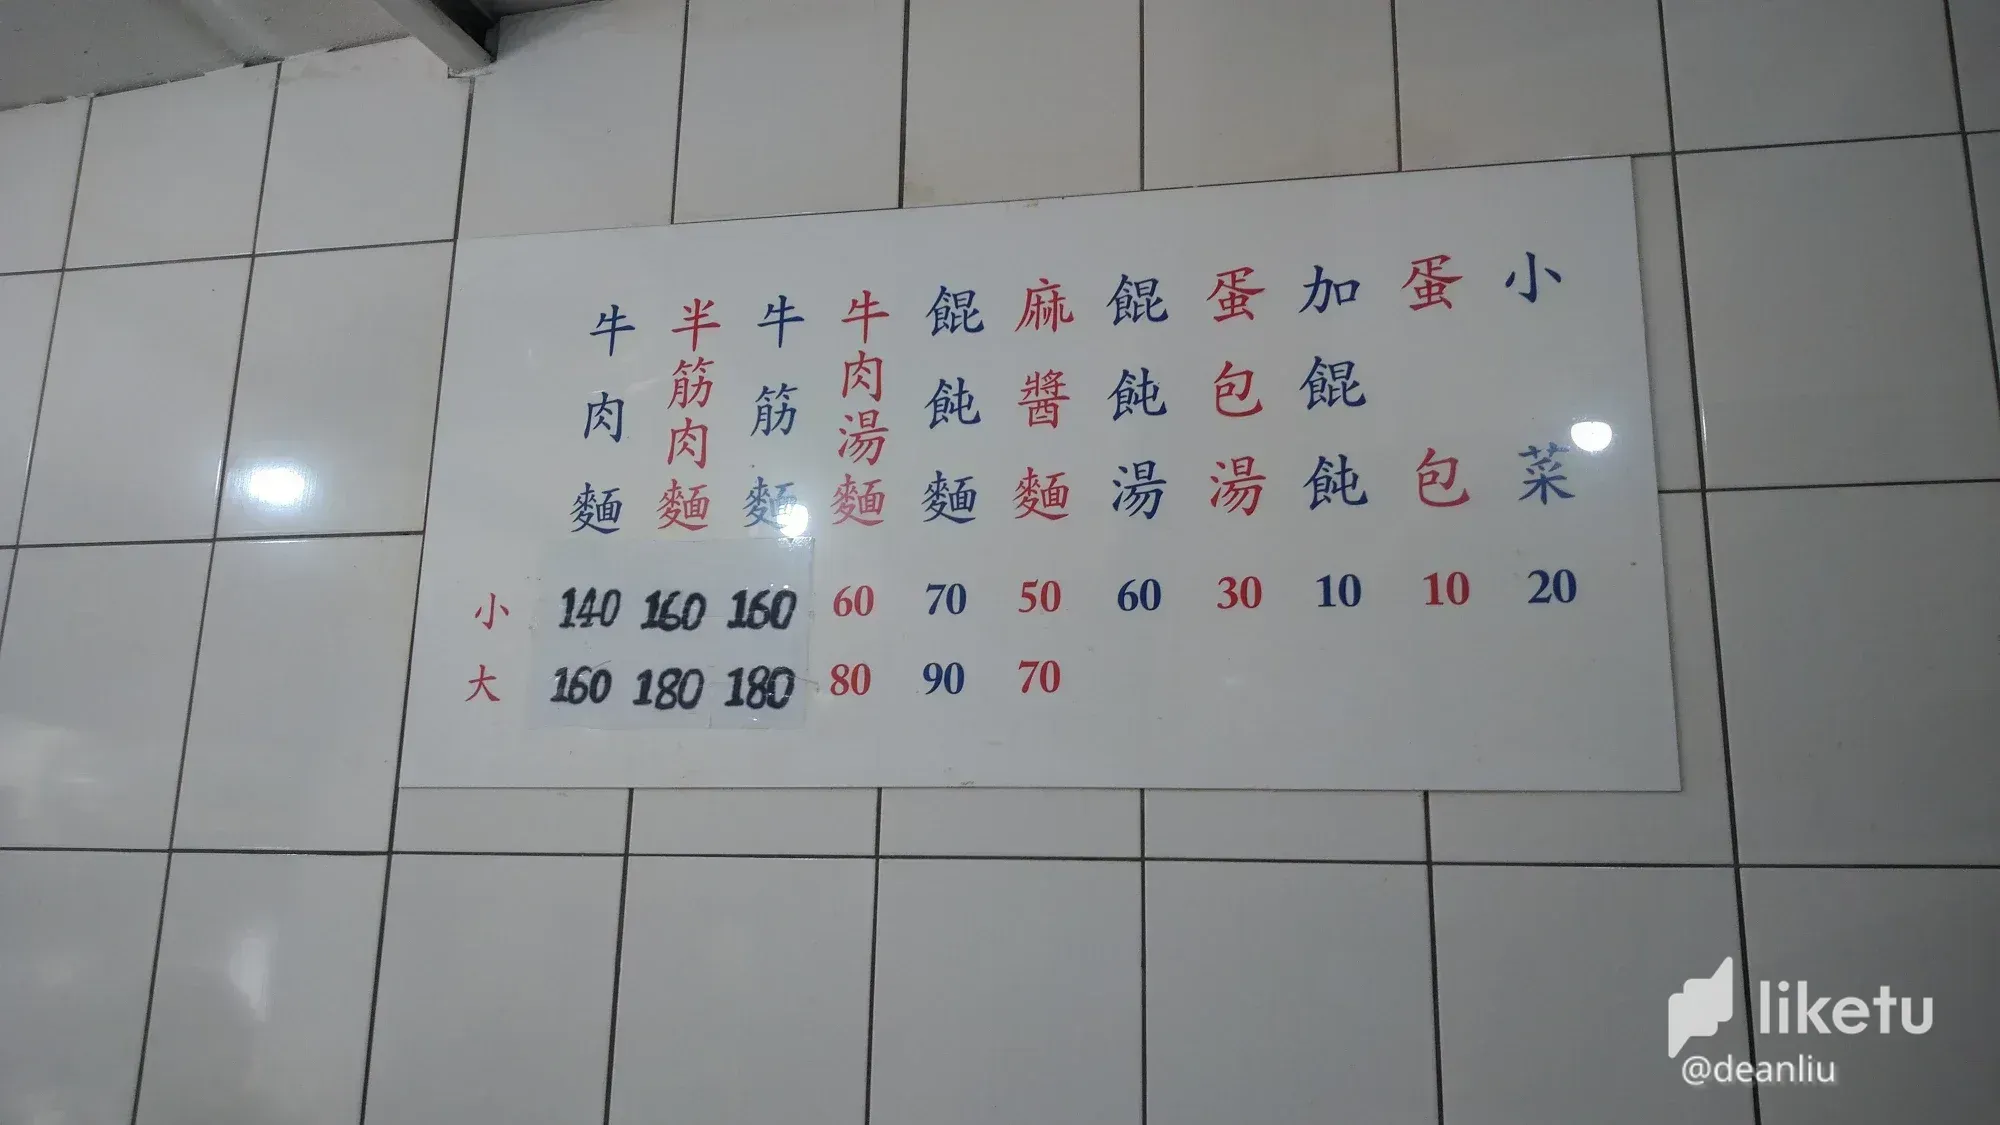 牛肉麵
半筋肉麵
牛筋麵
牛肉湯麵
餛飩麵
麻醬麵
餛飩湯
蛋包湯
加餛飩
蛋包
小菜
小 140 160 160 60 70 50 60 30 10 10 20
大 160 180 180 80 90 70
liketu
@deanliu